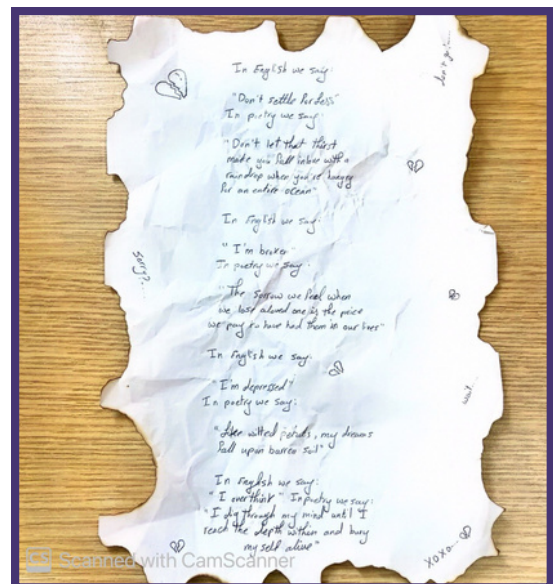 In English we say:
don't go...
"Don't settle for less"
In poetry we say:
"Don't let that thirst
make you fall in love with a
raindrop when you're hungry
for an entire ocean"
In English we say:
"I'm broken"
In poetry we say:
sorry?...
"The sorrow we feel when
we lose a loved one is the price
we pay to have had them in our lives"
In English we say:
"I'm depressed"
wait...
In poetry we say:
"Like wilted petals, my dreams
fall upon barren soil"
In English we say:
"I overthink" In poetry we say:
"I dig through my mind until I
reach the depth within and bury
my self alive"
xoxo...
CS Scanned with CamScanner